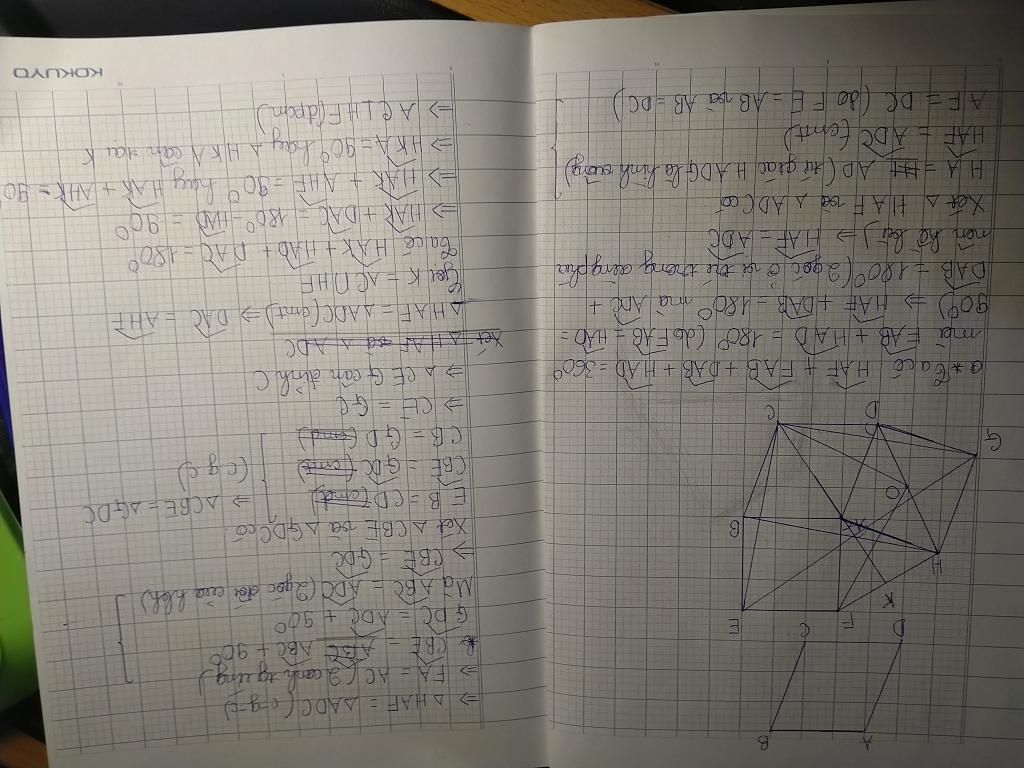 A B
D C
K F E
H
B
O
G
D C
a* Ta có HAF + FAB + DAB + HAD = 360°
mà FAB + HAD = 180° (do FAB = HAD =
90°) ⇒ HAF + DAB = 180° mà ADC +
DAB = 180° (2 góc ở vị trí trong cùng phía
) ⇒ HAF = ADC
Xét △ HAF và △ ADC có
HA = AD (tứ giác HADG là hình vuông)
HAF = ADC (cmt)
AF = DC (do FE = AB và AB = DC)
⇒ △ HAF = △ADC (c-g-c)
⇒ FA = AC (2 cạnh tg ứng)
CBE = ABC + 90°
GDC = ADC + 90°
Mà ABC = ADC (2 góc đối của hbh)
⇒ CBE = GDC
Xét △ CBE và △ GDC có
EB = CD (cmt)
CBE = GDC (cmt)
CB = GD (cmt)
(c g c) ⇒ △CBE = △GDC
⇒ CE = GC
⇒ △ CEG cân đỉnh C
Xét △ HAF và △ ADC
△HAF = △ADC (cmt) ⇒ DAC = AHF
Gọi K = AC ∩ HF
Ta có HAK + HAD + DAC = 180°
⇒ HAK + DAC = 180° - HAD = 90°
⇒ HAK + AHF = 90° hay HAK + AHK = 90
⇒ HKA = 90° hay △ HKA cân tại K
⇒ AC ⊥ HF (đpcm)
KOKUYO